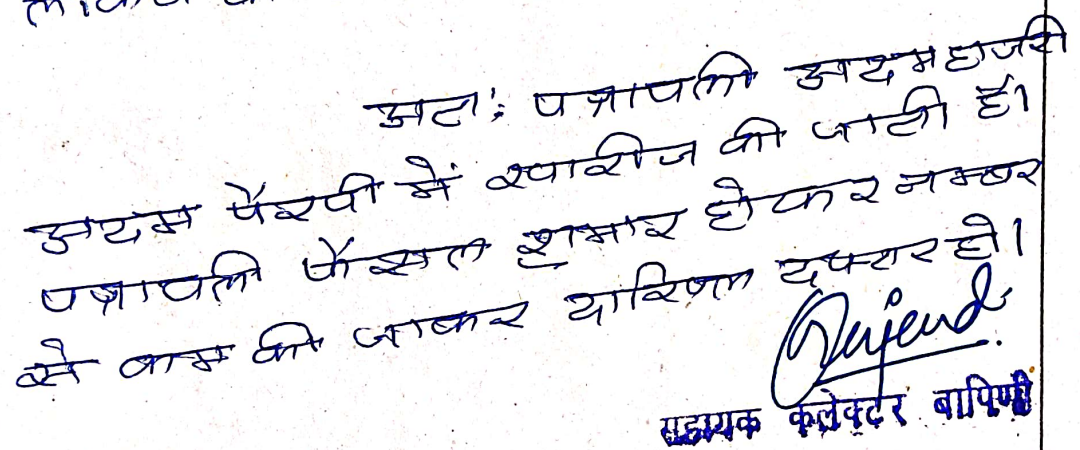 अतः पत्रावली अदम हाजरी
अदम पैरवी में खारीज की जाती है।
पत्रावली फैसल शुमार होकर नम्बर
से काम की जाकर दाखिल दफ्तर हो।
Rajend
सहायक कलेक्टर बापिणी